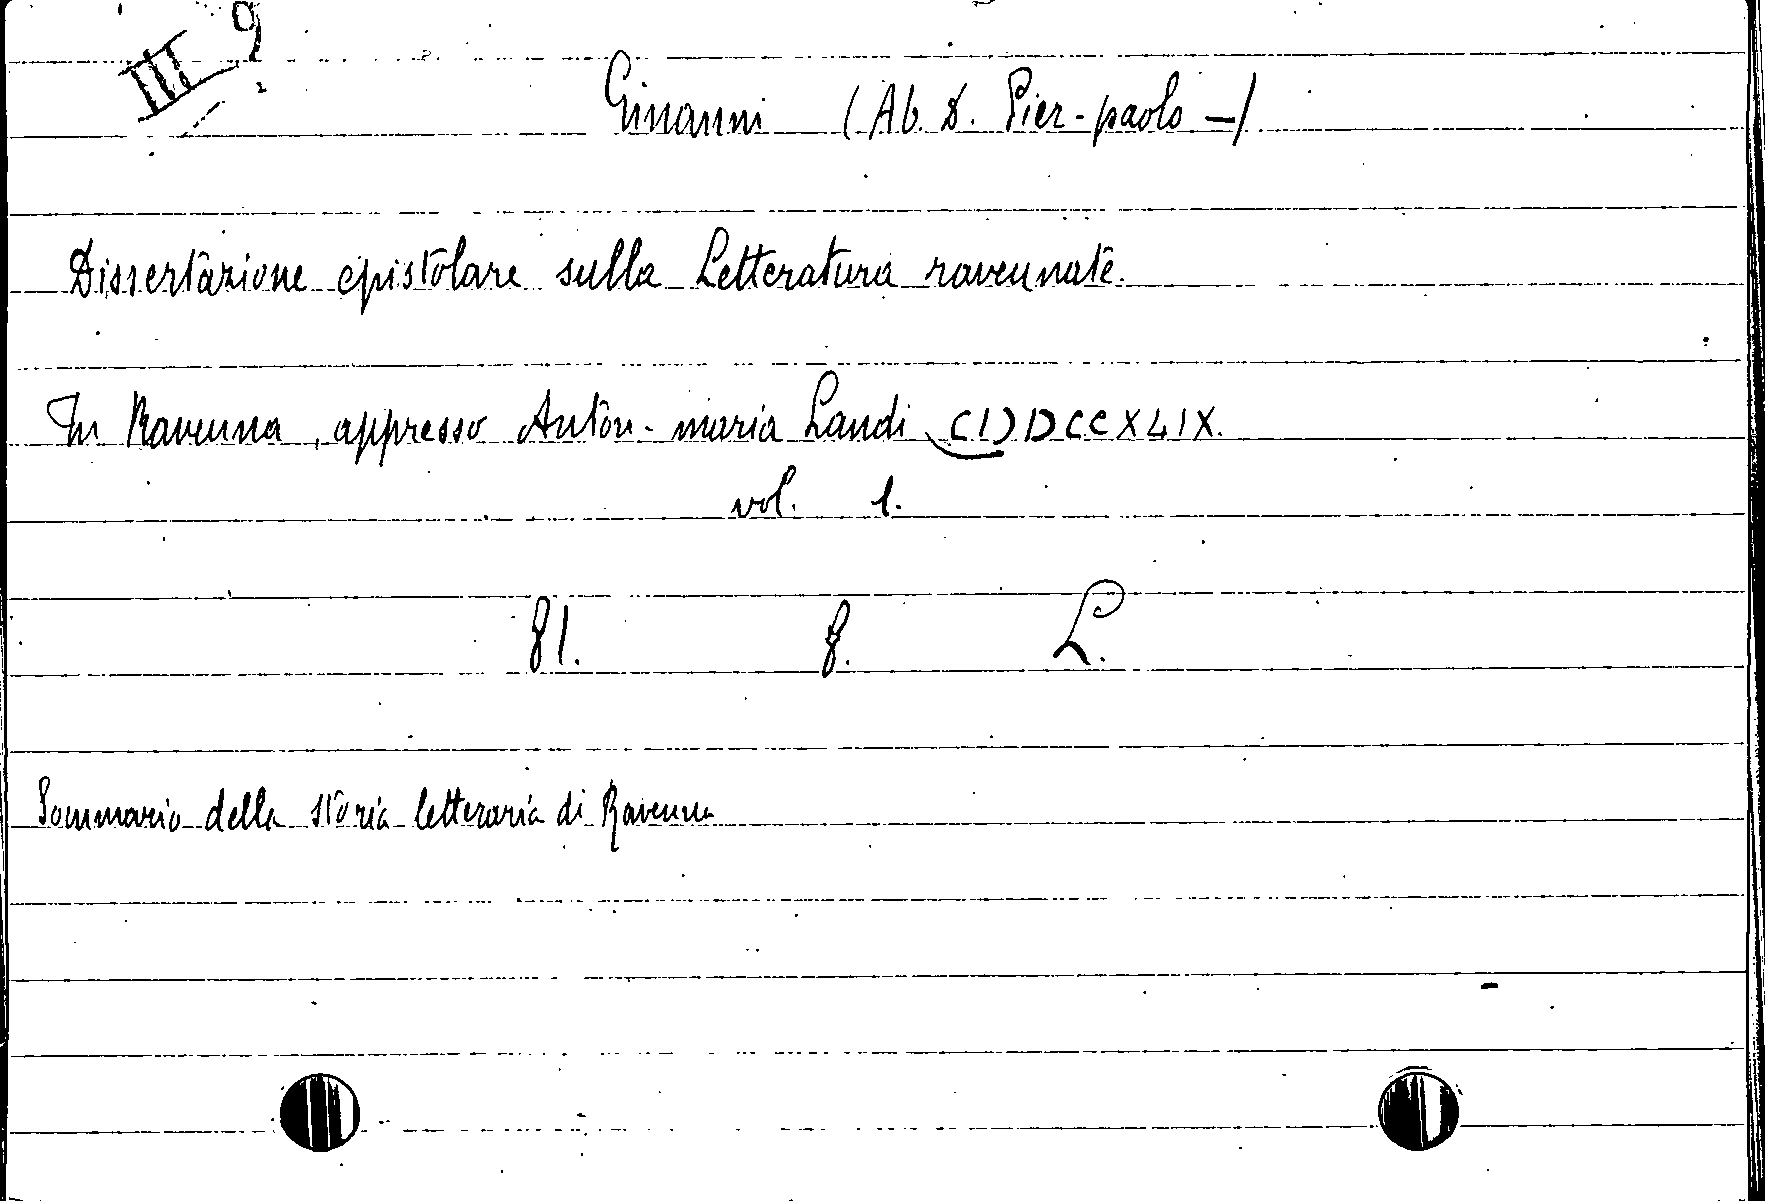 III 9
Ginanni (Ab. D. Pier-paolo —)
Dissertazione epistolare sulla Letteratura ravennate.
In Ravenna, appresso Anton-maria Landi (I)DCCXLIX.
vol. 1.
81. 8. L.
Sommario della storia letteraria di Ravenna